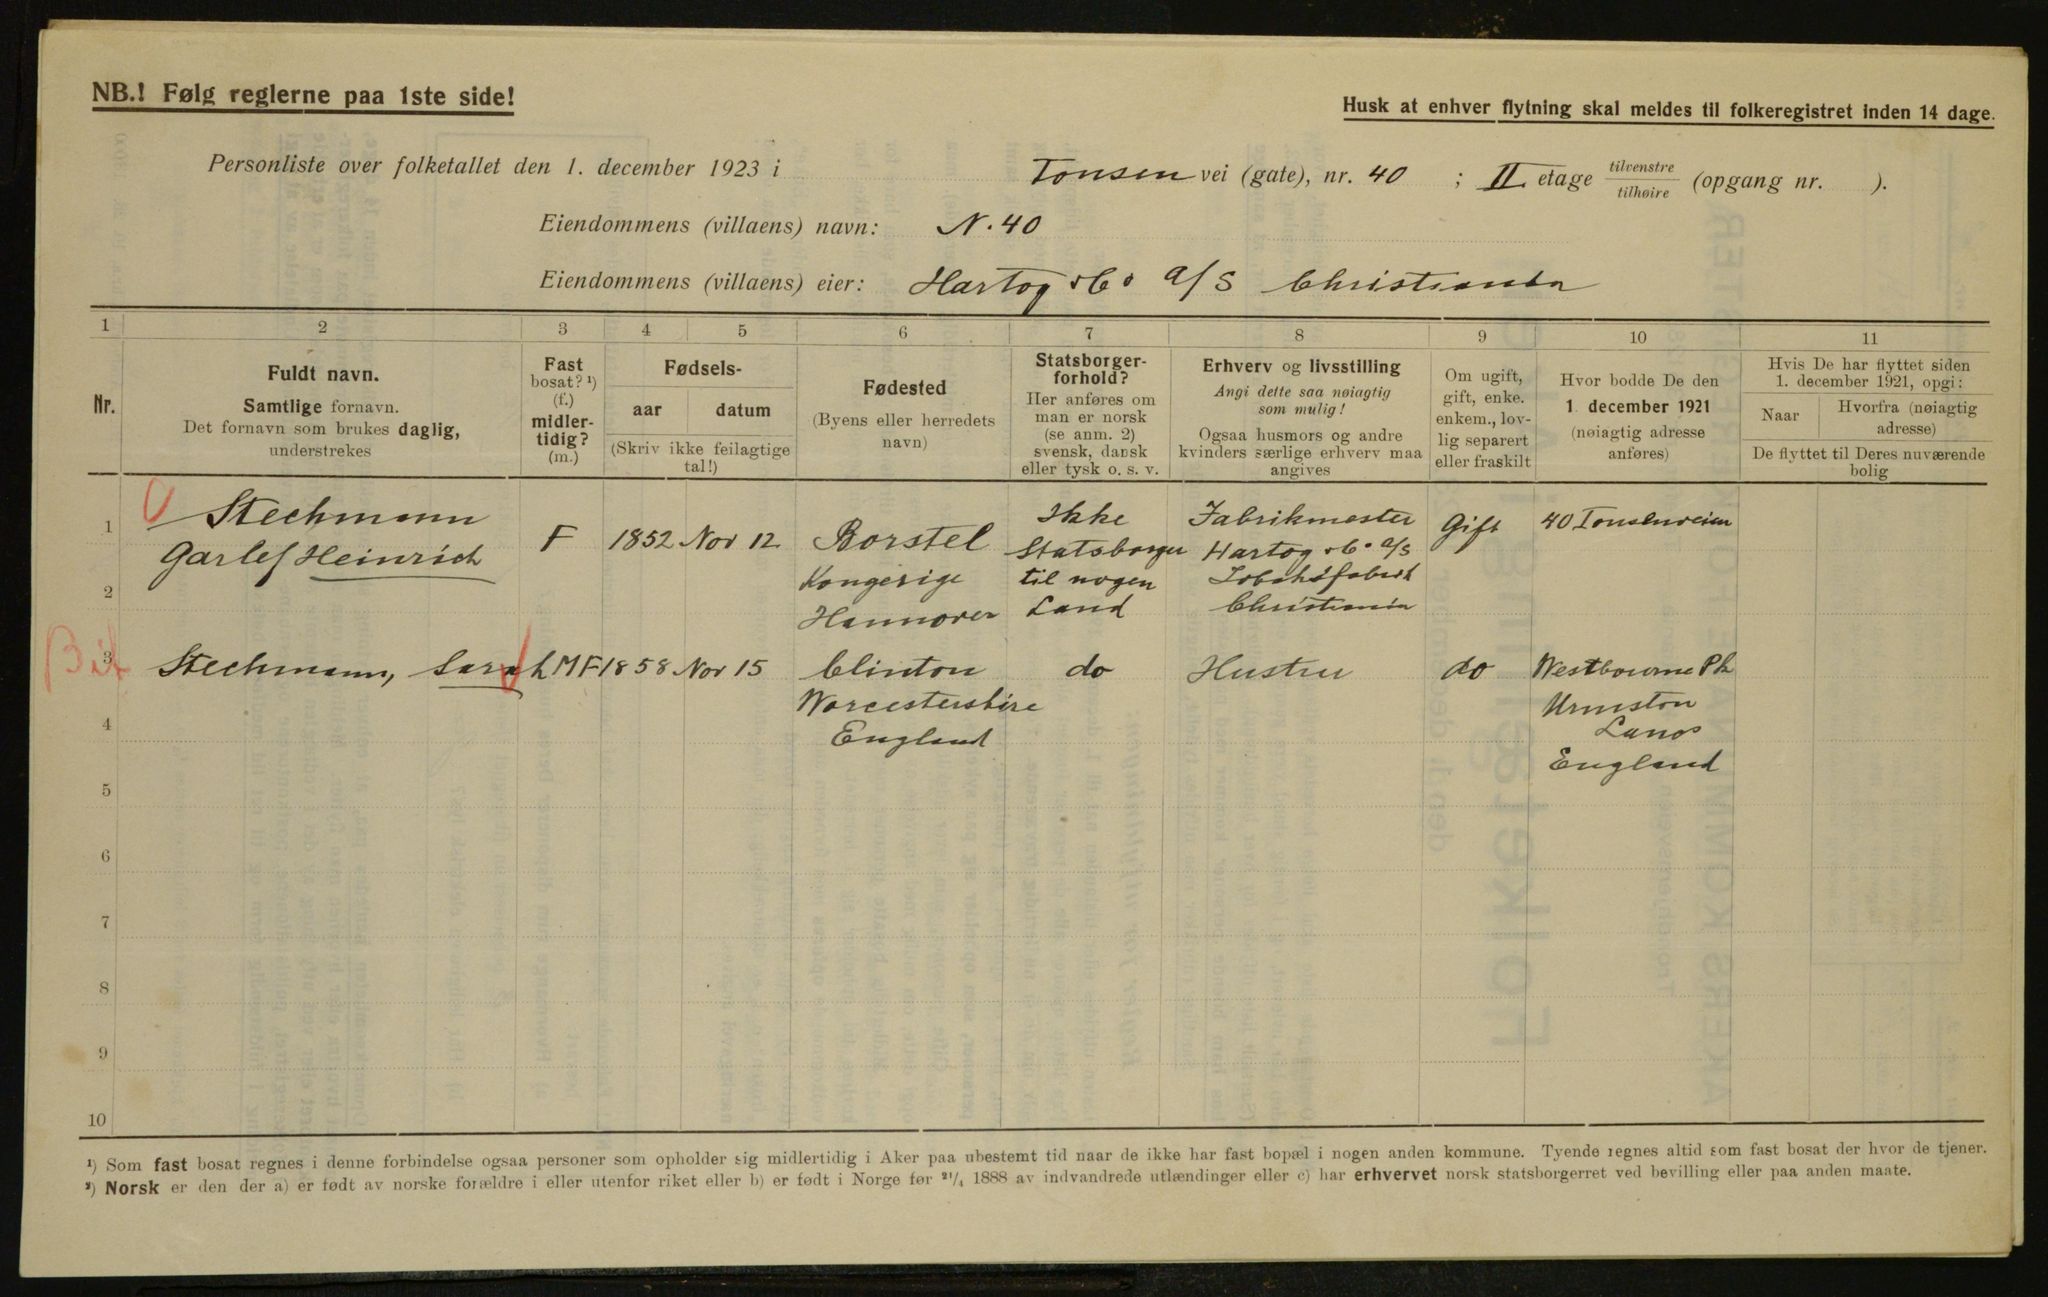 NB.! Følg reglerne paa 1ste side!
Husk at enhver flytning skal meldes til folkeregistret inden 14 dage.
Personliste over folketallet den 1. december 1923 i Tonsen vei (gate), nr. 40 ; II etage tilvenstre / tilhøire (opgang nr. ).
Eiendommens (villaens) navn: N. 40
Eiendommens (villaens) eier: Hartog & Co a/s Christiania
1 2 3 4 5 6 7 8 9 10 11
Nr.
Fuldt navn.
Samtlige fornavn.
Det fornavn som brukes daglig,
understrekes
Fast
bosat? ¹)
(f.)
midler-
tidig?
(m.)
Fødsels-
aar datum
(Skriv ikke feilagtige
tal!)
Fødested
(Byens eller herredets
navn)
Statsborger-
forhold?
Her anføres om
man er norsk
(se anm. 2)
svensk, dansk
eller tysk o. s. v.
Erhverv og livsstilling
Angi dette saa nøiagtig
som mulig!
Ogsaa husmors og andre
kvinders særlige erhverv maa
angives
Om ugift,
gift, enke.
enkem., lov-
lig separert
eller fraskilt
Hvor bodde De den
1 december 1921
(nøiagtig adresse
anføres)
Hvis De har flyttet siden
1. december 1921, opgi:
Naar
Hvorfra (nøiagtig
adresse)
De flyttet til Deres nuværende
bolig
1 Stechmann
Garlef Heinrich
F 1852 Nov 12
Borstel
Kongerige
Hannover
Ikke
Statsborger
til nogen
Land
Fabrikmester
Hartog & Co a/s
Christiania
Gift
40 Tonsenveien
2
3 Stechmann, Sarah M F 1858 Nov 15
Clinton
Worcestershire
England
do
Hustru
do
Westbourne Pk
Urmston
Lancs
England
4
5
6
7
8
9
10
¹) Som fast bosat regnes i denne forbindelse ogsaa personer som opholder sig midlertidig i Aker paa ubestemt tid naar de ikke har fast bopæl i nogen anden kommune. Tyende regnes altid som fast bosat der hvor de tjener.
²) Norsk er den der a) er født av norske forældre i eller utenfor riket eller b) er født i Norge før 21/4 1888 av indvandrede utlændinger eller c) har erhvervet norsk statsborgerret ved bevilling eller paa anden maate.